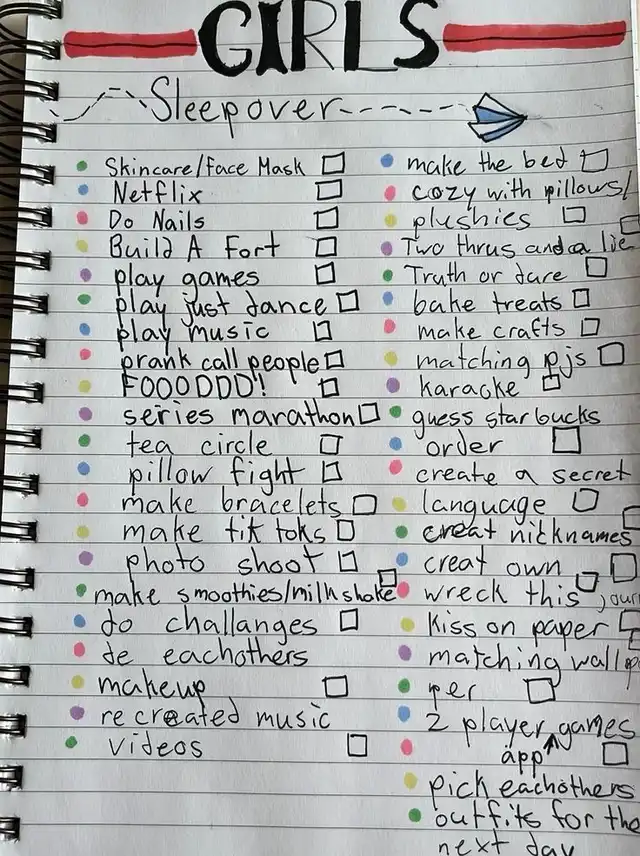 GIRLS
Sleepover
Skincare/Face Mask
Netflix
Do Nails
Build A Fort
play games
play just dance
play music
prank call people
FOOODDD!
series marathon
tea circle
pillow fight
make bracelets
make tik toks
photo shoot
make smoothies/milkshake
do challanges
de eachothers
makeup
recreated music
videos
make the bed
cozy with pillows/
plushies
Two thrus and a lie
Truth or dare
bake treats
make crafts
matching pjs
karaoke
guess starbucks
order
create a secret
language
creat nicknames
creat own
wreck this jour
kiss on paper
matching wallp
per
2 player games
app
pick eachothers
outfits for the
next day